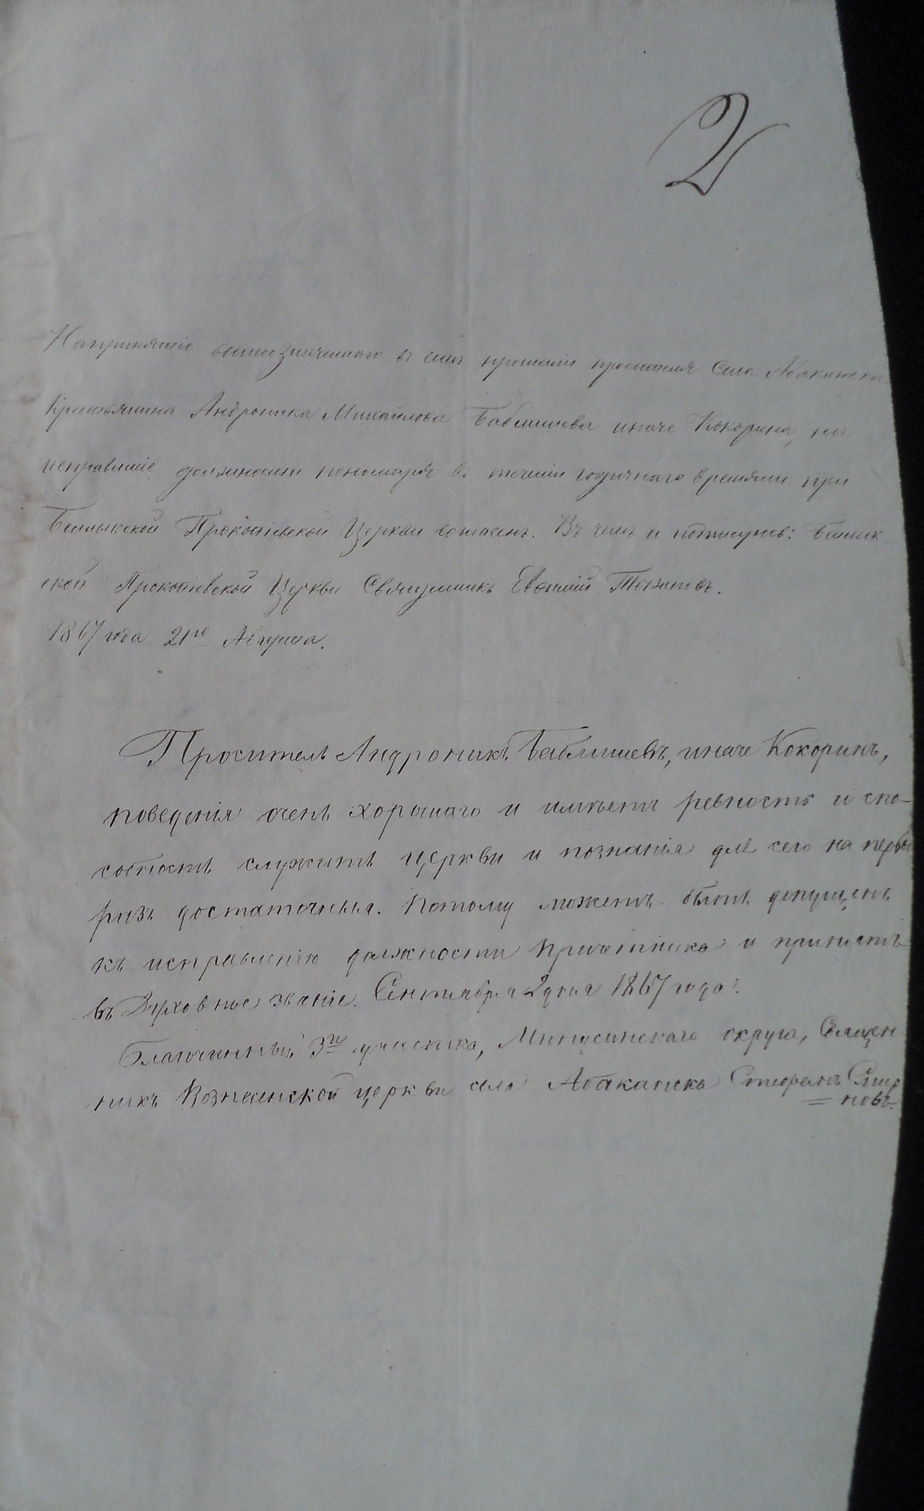 2
На принятіе вышеозначеннаго въ семъ прошеніи просителя Села Абаканска
Крестьянина Андроника Михайлова Баблишева иначе Кокорина, на
исправленіе должности пономаря въ теченіи годичнаго времяни при
Беллыкской Прокопьевской Церкви согласенъ. Въ чемъ и подписуюсь: Беллык
ской Прокопьевской Церкви Священникъ Евѳимій
1867 года 21го Августа.
Проситель Андроникъ Баблишевъ, иначе Кокоринъ,
поведенія очень хорошаго и имѣетъ ревность и спо-
собность служить церкви и познанія для сего на первый
разъ достаточныя. Потому можетъ быть допущенъ
къ исправленію должности причетника и принятъ
въ Духовное званіе. Сентября 2 дня 1867 года.
Благочинный 3го участка, Минусинскаго округа, Священ
никъ Вознесенской церкви села Абаканска Стефанъ Смир
новъ.